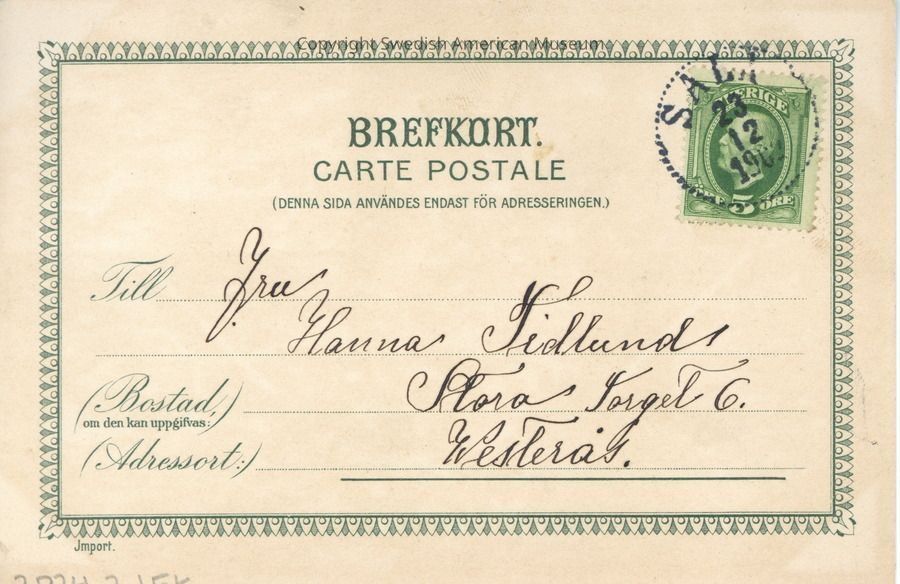 Copyright Swedish American Museum
BREFKORT.
CARTE POSTALE
(DENNA SIDA ANVÄNDES ENDAST FÖR ADRESSERINGEN.)
SALA
23
12
SVERIGE
5 ÖRE
Till Fru
Hanna Tidlund
(Bostad, Stora Torget 6.
om den kan uppgifvas:)
(Adressort:) Westerås.
Import.